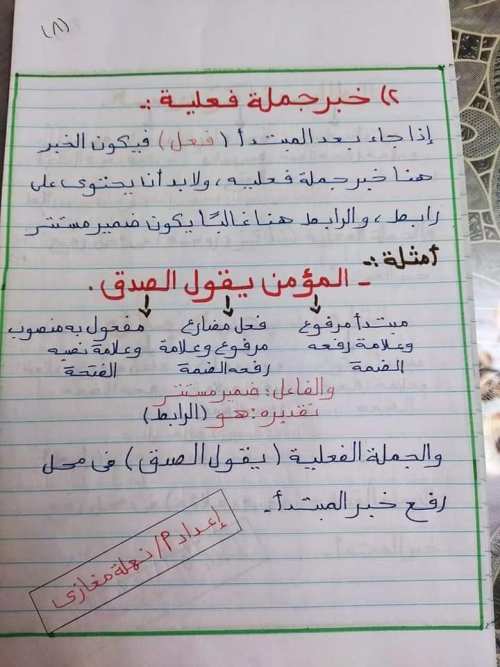 (٨)
٢) خبر جملة فعلية :-
إذا جاء بعد المبتدأ (فعل) فيكون الخبر
هنا خبر جملة فعليه، ولابد أن يحتوى على
رابط، والرابط هنا غالبًا يكون ضمير مستتر
أمثلة :-
- المؤمن يقول الصدق.
مبتدأ مرفوع فعل مضارع مفعول به منصوب
وعلامة رفعه مرفوع وعلامة وعلامة نصبه
الضمة رفعه الضمة الفتحة
والفاعل: ضمير مستتر
تقديره: هو (الرابط)
والجملة الفعلية (يقول الصدق) فى محل
رفع خبر المبتدأ.
إعداد م/ نهلة مغازى